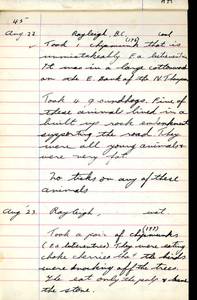 45
Aug. 22 Rayleigh, B.C. cool
Took 1 chipmunk that is
unmistakeably E. a
It was in a large cottonwood
on the E. Bank of the N. Thompson
Took 4 groundhogs. Five of
these animals lived in a
built up rock embankment
supporting the road. They
were all young animals &
were very fat.
No ticks on any of these
animals
Aug 23 Rayleigh,
Took a pair of chipmunks
They were eating
choke cherries that the birds
were knocking off the trees.
the stone.